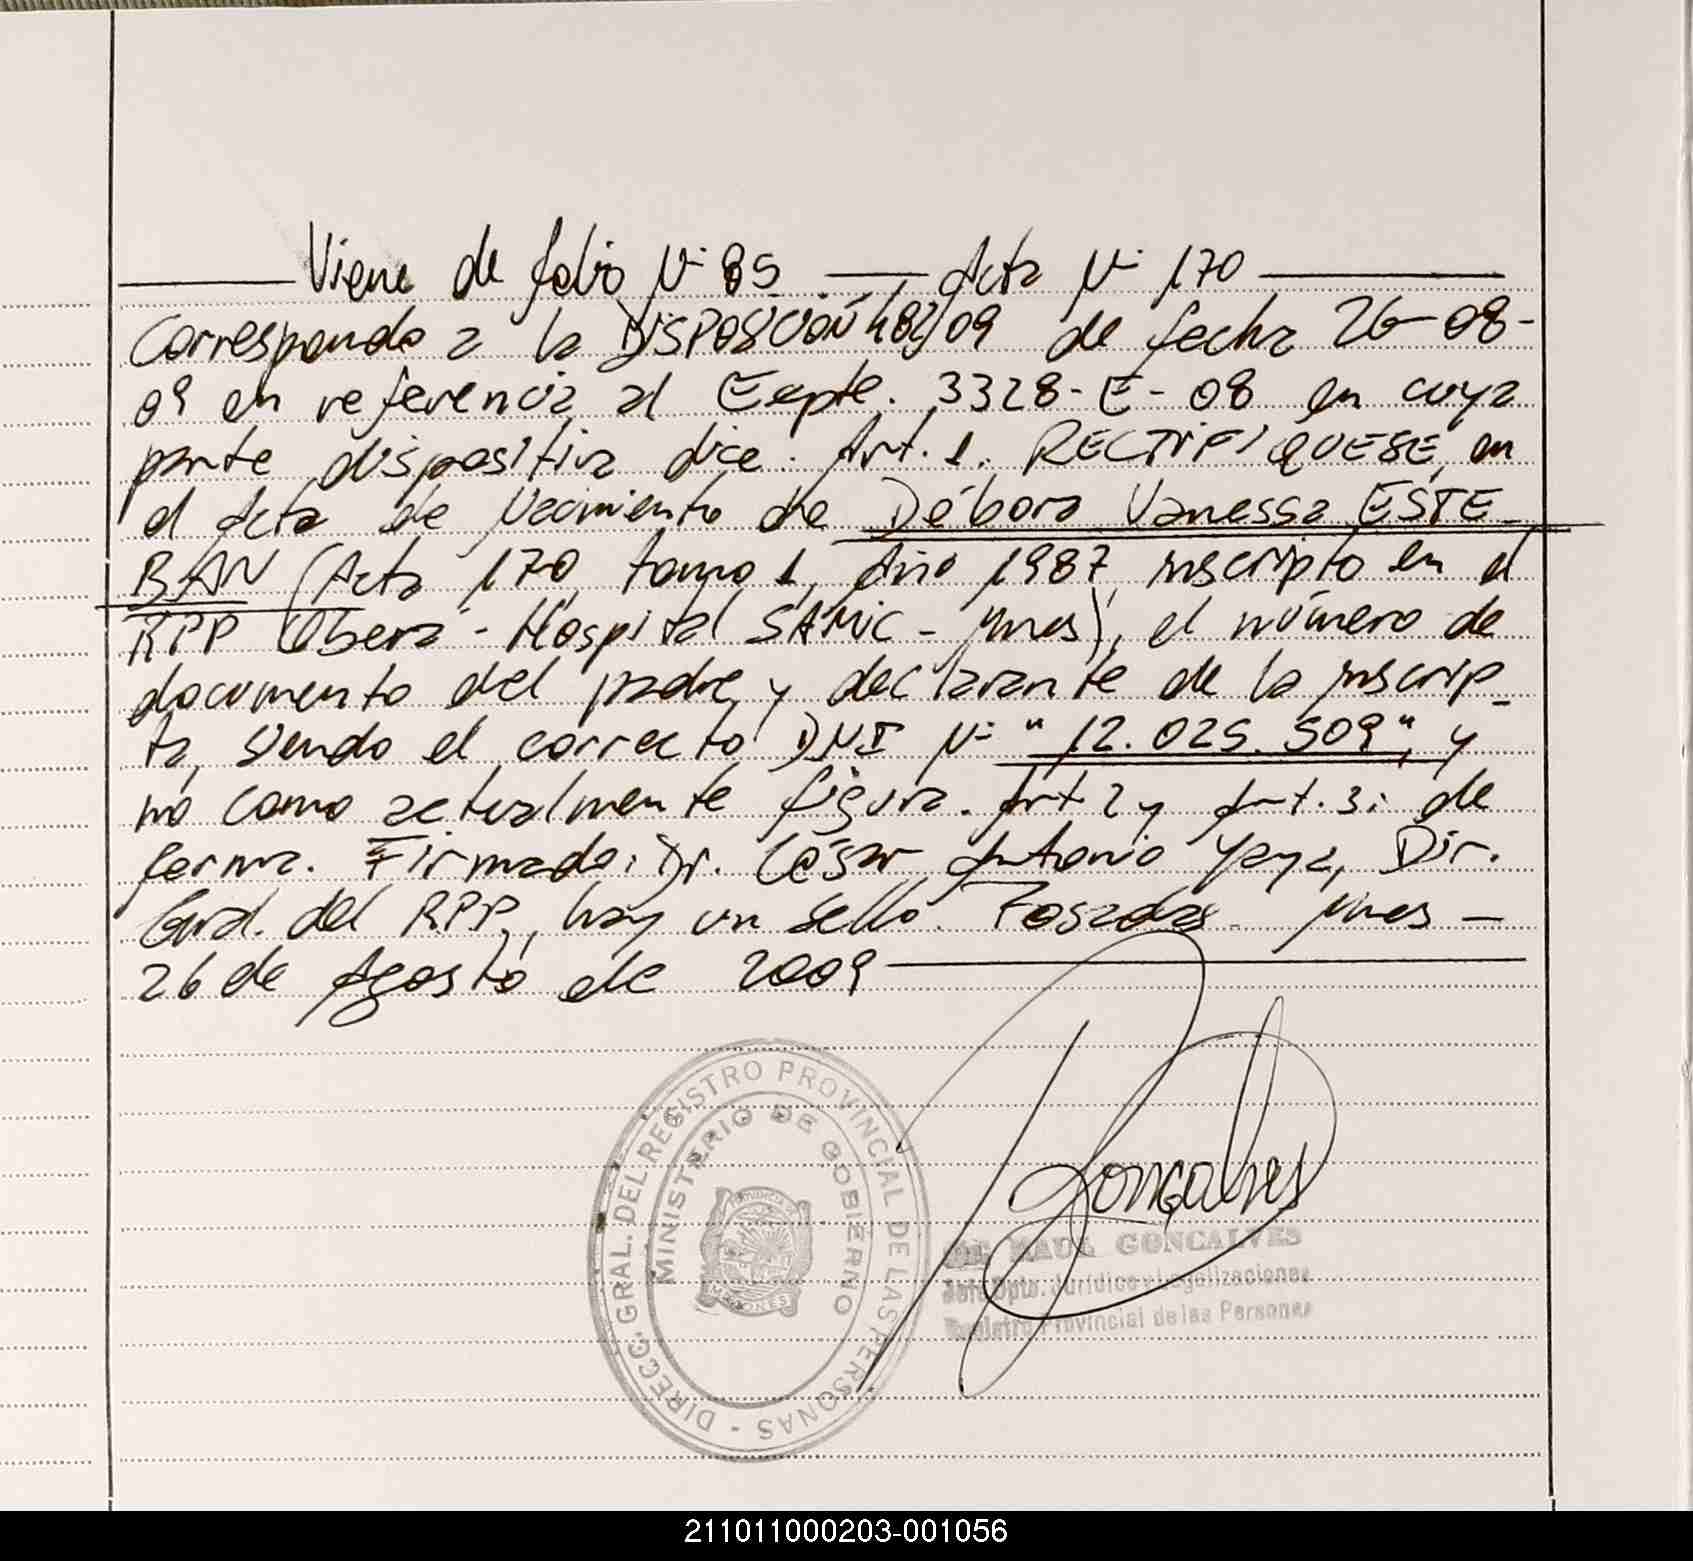 Viene de folio Nº 85 — Acta Nº 170
Corresponde a la DISPOSICIÓN 482/09 de fecha 26-08-
09 en referencia al Expte. 3328-E-08 en cuya
parte dispositiva dice. Art. 1. RECTIFIQUESE, en
el Acta de Nacimiento de Débora Vanessa ESTE-
BAN (Acta 170, tomo 1, Año 1987, inscripto en el
RPP Oberá - Hospital SAMIC - Mnes), el número de
documento del padre y declarante de la inscrip-
ta, siendo el correcto DNI Nº "12.025.509", y
no como actualmente figura. Art 2 y Art. 3: de
forma. Firmado: Dr. César Antonio Yaya, Dir.
Gral. del RPP., hay un sello. Posadas - Mnes -
26 de Agosto de 2009
DIRECC. GRAL. DEL REGISTRO PROVINCIAL DE LAS PERSONAS -
MINISTERIO DE GOBIERNO
MISIONES
Goncalves
RAUL GONCALVES
Jefe Dpto. Jurídico y Legalizaciones
Registro Provincial de las Personas
211011000203-001056